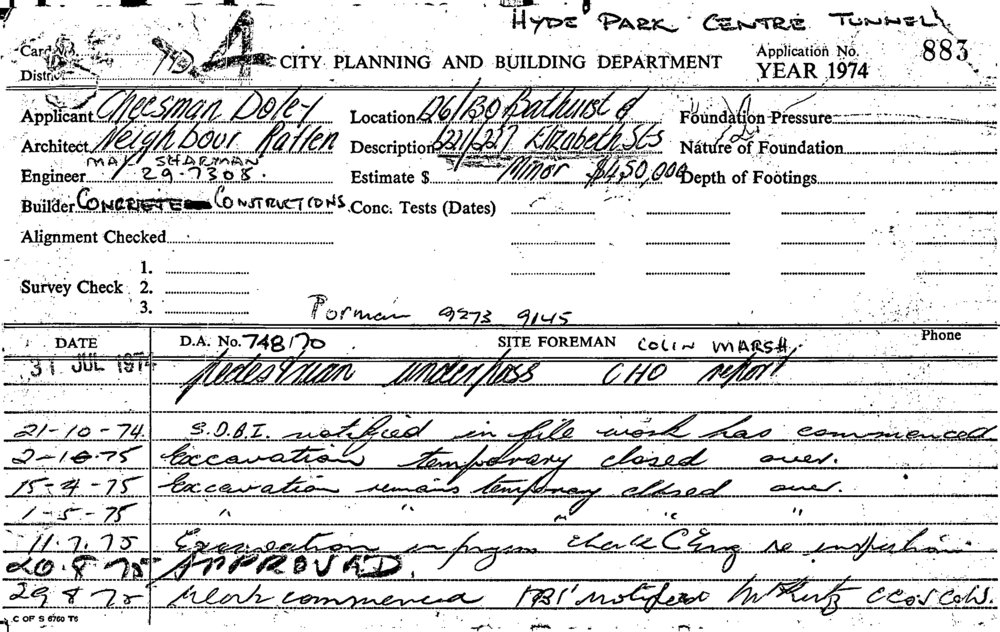 HYDE PARK CENTRE TUNNEL
Card No.
District
4
CITY PLANNING AND BUILDING DEPARTMENT
Application No. 883
YEAR 1974
Applicant Cheesman Doley
Architect Neighbour Raffen
Engineer MAX SHARMAN 29-7308.
Builder CONCRETE CONSTRUCTIONS
Alignment Checked
Survey Check 1.
2.
3.
Location 126/130 Bathurst &
Description 221/227 Elizabeth Sts
Estimate $ Minor $450,000
Conc. Tests (Dates)
Foundation Pressure
Nature of Foundation
Depth of Footings
9273 9145
DATE D.A. No. 748170 SITE FOREMAN COLIN MARSH. Phone
31 JUL 1974 pedestrian underpass CHO report
21-10-74. S.D.B.I. notified in file work has commenced
2-10-75 Excavation temporary closed over.
15-4-75 Excavation remains temporary closed over.
1-5-75 " " " "
11.7.75 Excavation in progress re inspection
20.8.75 APPROVED.
29 8 75 Work commenced notified
C OF S 6760 T6